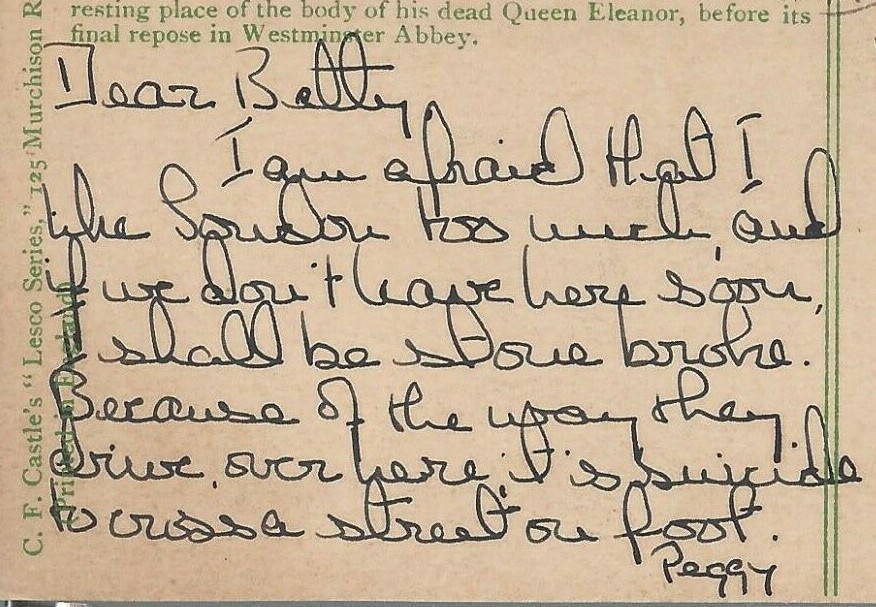 resting place of the body of his dead Queen Eleanor, before its
final repose in Westminster Abbey.
Dear Betty
I am afraid that I
like London too much, and
if we don't leave here soon,
I shall be stone broke.
Because of the way they
drive over here, it's suicide
to cross a street on foot.
Peggy
C. F. Castle's "Lesco Series," 125 Murchison R
Printed in England